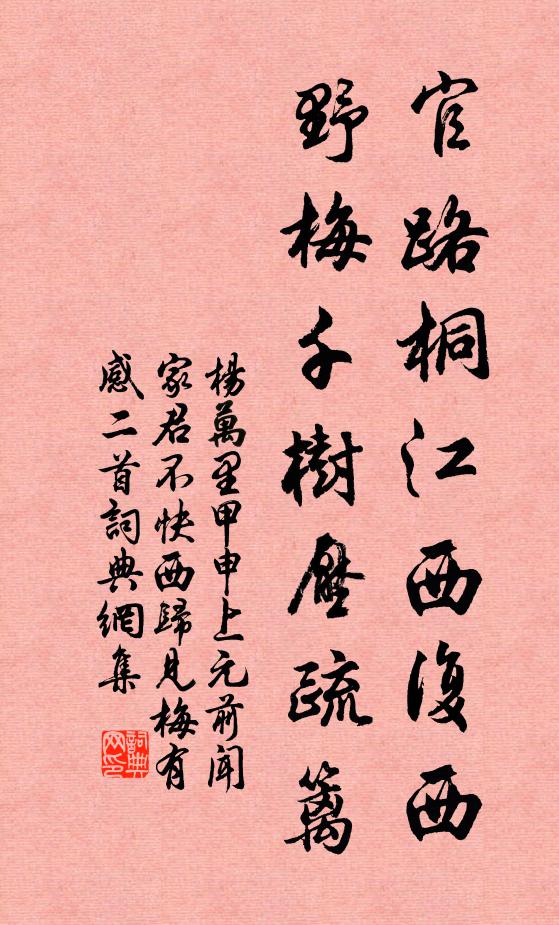 官路桐江西復西
野梅千樹壓疏籬
楊萬里甲申上元前聞
家君不快西歸見梅有
感二首詞典網集
詞典网印